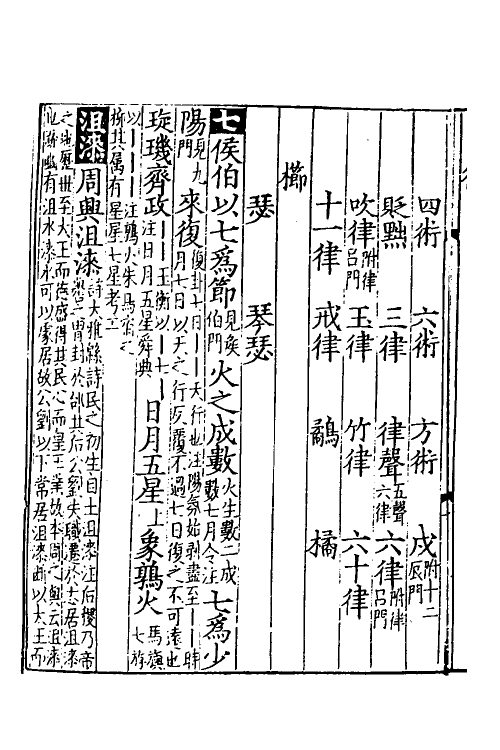 四術　六術　方術　戍附十二辰門
貶黜　三律　律聲五聲六律　六律附律呂門
吹律附律呂門　玉律　竹律　六十律
十一律　戒律　鷸　橘
櫛
瑟　琴瑟
七　侯伯以七爲節見侯伯門　火之成數火生數二成數七月令注　七爲少
陽見九門　來復復卦七日――天行也注陽氣始剥盡至――時月七日以天之行反覆不過七日復之不可遠也
璇璣齊政――玉衡以――七――注日月五星舜典　日月五星上　象鶉火馬旗七斿
以――注鶉火朱鳥宿之柳其属有星星七星考工
沮漆　周興沮漆詩大雅緜詩民之初生自土沮漆注后稷乃帝嚳之胄封於邰其后公劉失職遷於豳居沮漆
之地歷世至大王而德益得其民心而生王業故本周之興云沮漆也斯豳有沮水漆水可以處居故公劉以下常居沮漆西以太王而